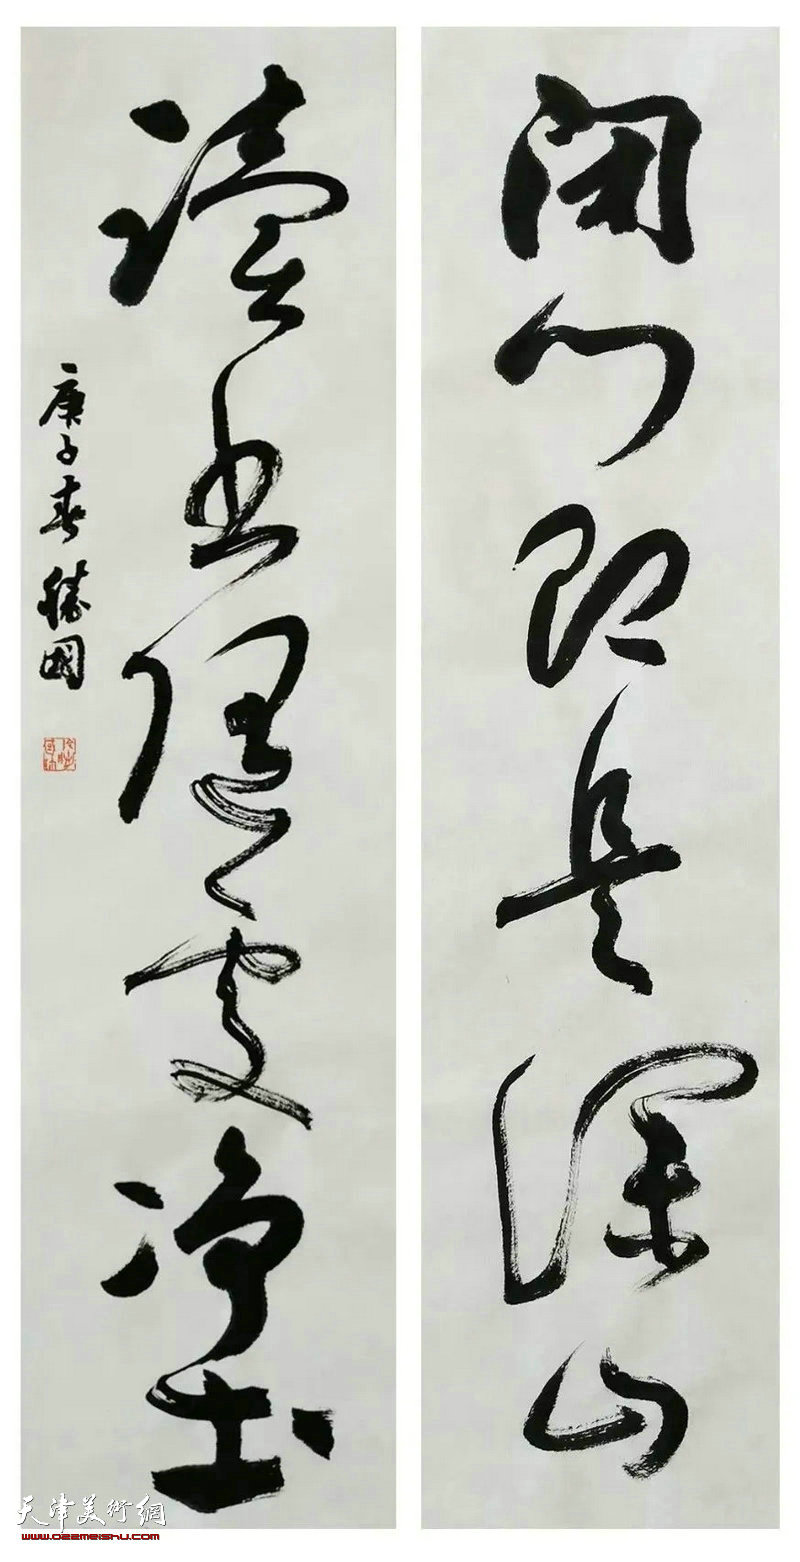 闭门即是深山
读书随处净土
庚子春 胜国
天津美術網
www.022meishu.com